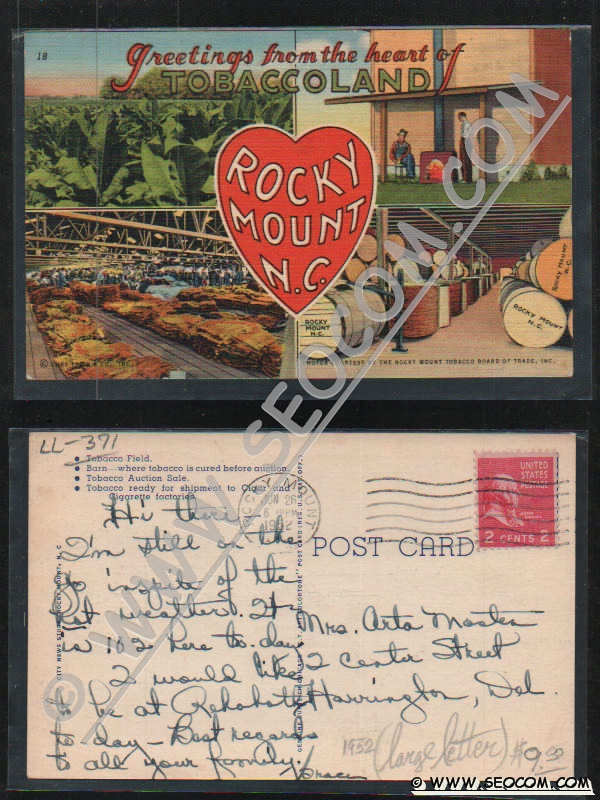 1B
Greetings from the heart of
TOBACCOLAND
ROCKY
MOUNT
N.C.
ROCKY MOUNT
N.C.
ROCKY MOUNT
N.C.
ROCKY
MOUNT
N.C.
COURTESY OF THE ROCKY MOUNT TOBACCO BOARD OF TRADE, INC.
© WWW.SEOCOM.COM
LL-371
• Tobacco Field.
• Barn—where tobacco is cured before auction.
• Tobacco Auction Sale.
• Tobacco ready for shipment to Cigar and
Cigarette factories.
JUN 26
1952
UNITED
STATES
POSTAGE
2 CENTS 2
POST CARD
Hi there,
I'm still on the
go inspite of the
hot weather. It
is 102 here to-day
I would like
to be at Rehoboth
to-day—Best regards
to all your family.
Grace
Mrs. Arta Masten
2 Center Street
Harrington, Del.
CITY NEWS STAND, ROCKY MOUNT, N. C.
1952 (large letter) $9.50
© WWW.SEOCOM.COM